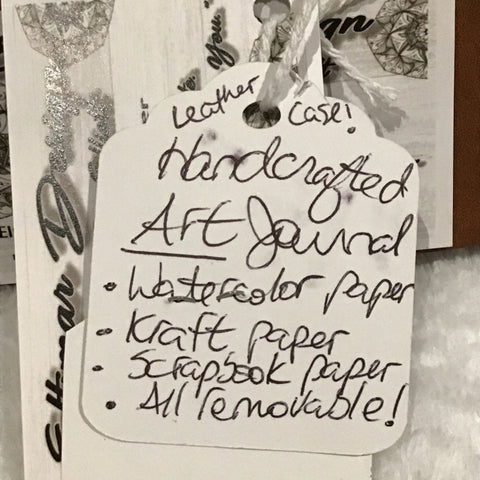 Leather Case!
Handcrafted
Art Journal
• Watercolor paper
• Kraft paper
• Scrapbook paper
• All removable!